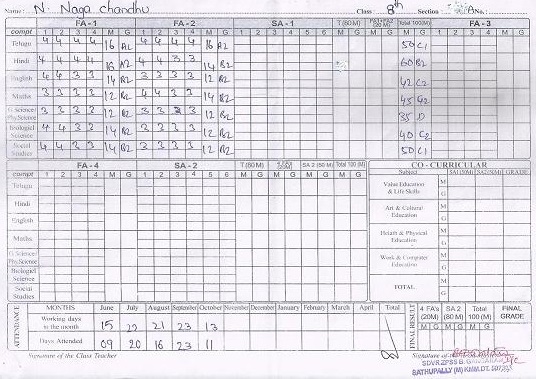 Name: N. Naga chandhu Class 8th Section No.:
FA - 1 FA - 2 SA - 1 T (80 M) Total 100(M) FA - 3
compt 1 2 3 4 M G 1 2 3 4 M G 1 2 3 4 5 6 M G M G M G M G 1 2 3 4 M G
Telugu 4 4 4 4 16 A2 4 4 4 4 16 A2 50 C1
Hindi 4 4 4 4 16 A2 4 4 3 3 14 B2 60 B2
English 4 4 3 3 14 B2 3 3 3 3 12 B2 42 C2
Maths 3 3 3 3 12 B2 4 4 3 3 14 B2 45 C2
G.Science/ Phy.Science 3 3 3 3 12 B2 3 3 3 3 12 B2 35 D
Biologiel Science 4 4 3 3 14 B2 3 3 3 3 12 B2 40 C2
Social Studies 4 4 3 3 14 B2 3 3 3 3 12 B2 50 C1
FA - 4 SA - 2 T (80 M) 4 FA's (20M) SA 2 (80 M) Total 100 (M) CO - CURRICULAR
compt 1 2 3 4 M G 1 2 3 4 5 6 M G M G M G M G M G Subject SA1(50M) SA2(50M) GRADE
Telugu
Hindi
English
Maths
G.Science/ Phy.Science
Biologiel Science
Social Studies
Value Education & Life Skills M G
Art & Cultural Education M G
Helath & Physical Education M G
Work & Computer Education M G
TOTAL M G
ATTENDANCE
MONTHS June July August September October November December January February March April Total
Working days in the month 15 22 21 23 13
Days Attended 09 20 16 23 11
FINAL RESULT 4 FA's (20M) SA 2 (80 M) Total 100 (M) FINAL GRADE
M G M G M G
Signature of the Class Teacher Signature of